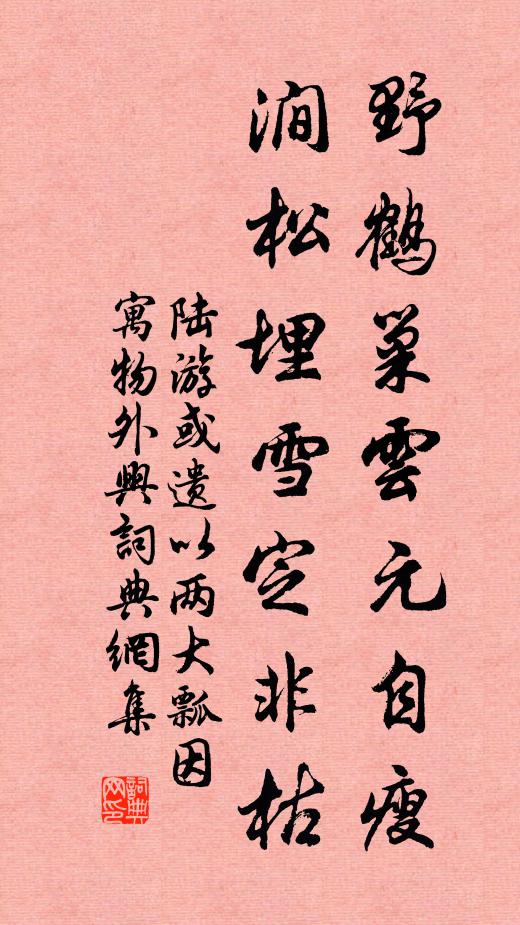 野鶴巢雲元自瘦
澗松埋雪定非枯
陆游或遗以两大瓢因
寓物外興詞典網集
詞典
网印